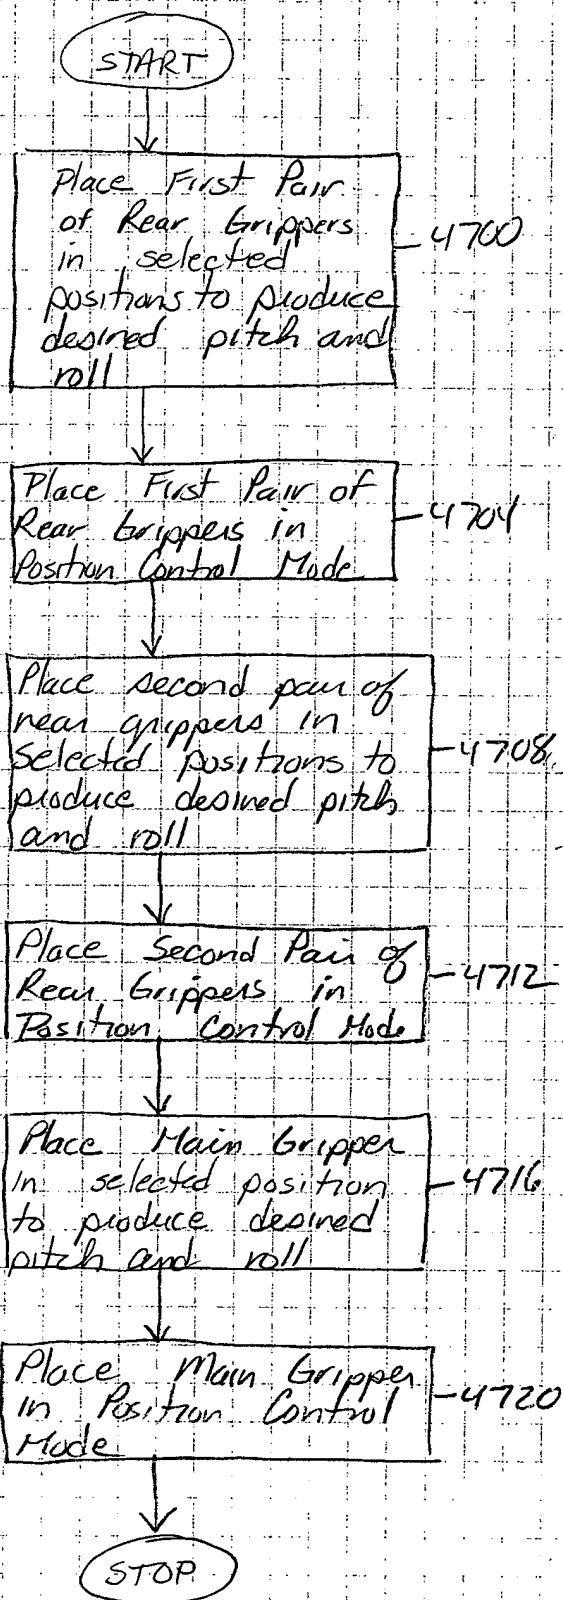 START
Place First Pair
of Rear Grippers
in selected
4700
positions to produce
desired pitch and
roll
Place First Pair of
Rear Grippers in
4704
Position Control Mode
Place second pair of
rear grippers in
selected positions to
4708
produce desired pitch
and roll
Place Second Pair of
Rear Grippers in
4712
Position Control Mode
Place Main Gripper
in selected position
4716
to produce desired
pitch and roll
Place Main Gripper
in Position Control
4720
Mode
STOP